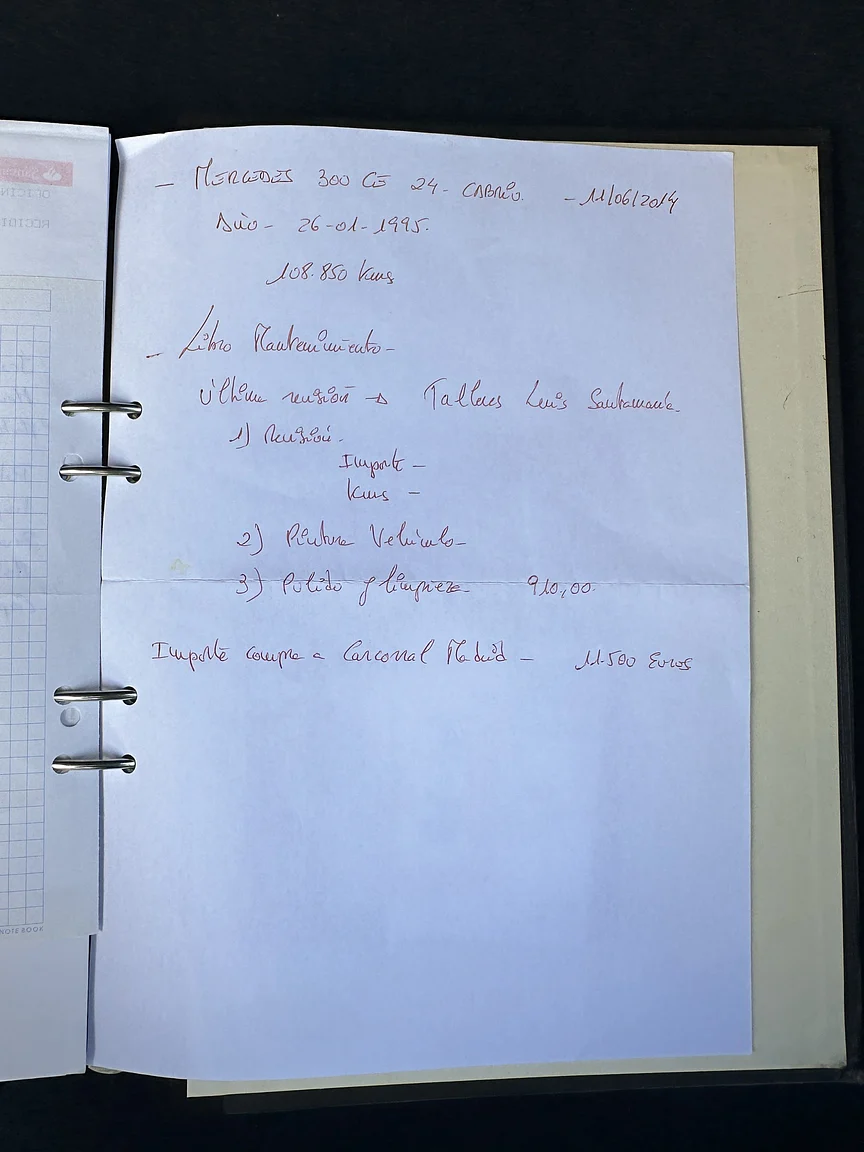 - MERCEDES 300 CE 24- CABRIO. - 11/06/2014
Año - 26-01-1995.
108.850 Kms
- Libro Mantenimiento -
Última revisión → Talleres Luis Santamaría.
1) Revisión.
Importe -
Kms -
2) Pintura Vehículo -
3) Pulido y limpieza. 910,00.
Importe compra a Carcorral Madrid - 11.500 Euros